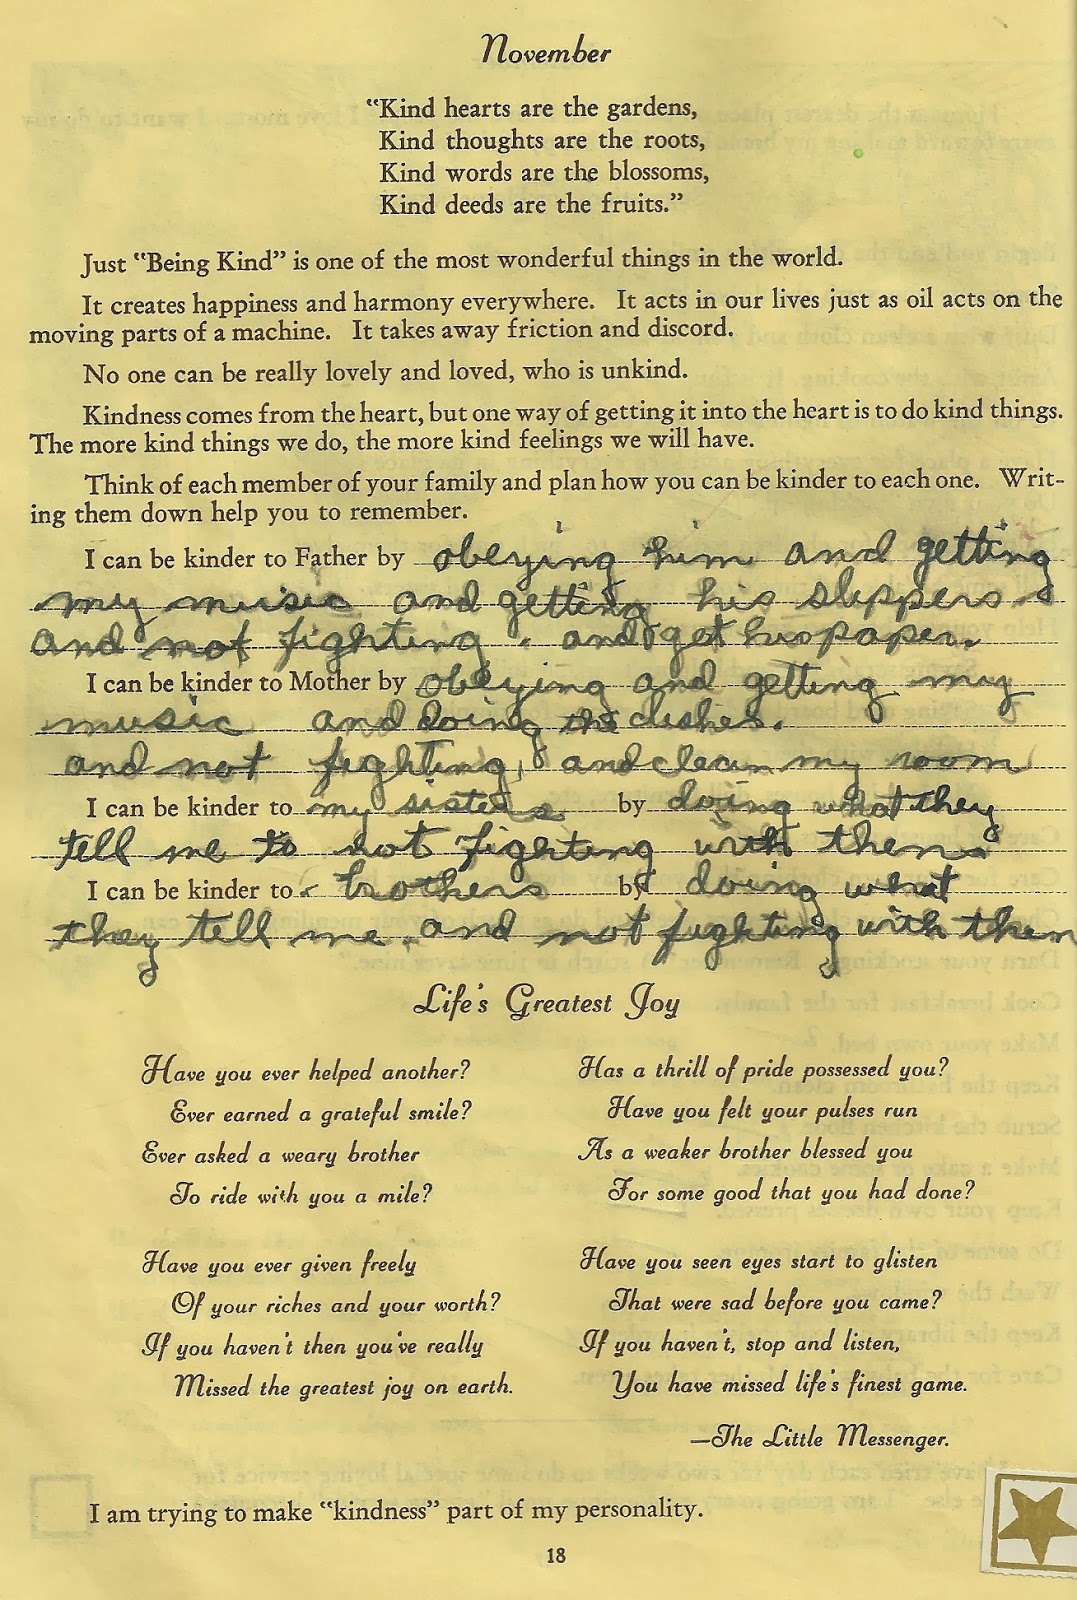 November
"Kind hearts are the gardens,
Kind thoughts are the roots,
Kind words are the blossoms,
Kind deeds are the fruits."
Just "Being Kind" is one of the most wonderful things in the world.
It creates happiness and harmony everywhere. It acts in our lives just as oil acts on the
moving parts of a machine. It takes away friction and discord.
No one can be really lovely and loved, who is unkind.
Kindness comes from the heart, but one way of getting it into the heart is to do kind things.
The more kind things we do, the more kind feelings we will have.
Think of each member of your family and plan how you can be kinder to each one. Writ-
ing them down help you to remember.
I can be kinder to Father by obeying him and getting
my music and getting his slippers
and not fighting. and get his paper.
I can be kinder to Mother by obeying and getting my
music and doing the dishes.
and not fighting, and clean my room
I can be kinder to my sisters by doing what they
tell me to not fighting with them
I can be kinder to brothers by doing what
they tell me and not fighting with them
Life's Greatest Joy
Have you ever helped another?
Ever earned a grateful smile?
Ever asked a weary brother
To ride with you a mile?
Have you ever given freely
Of your riches and your worth?
If you haven't then you've really
Missed the greatest joy on earth.
Has a thrill of pride possessed you?
Have you felt your pulses run
As a weaker brother blessed you
For some good that you had done?
Have you seen eyes start to glisten
That were sad before you came?
If you haven't, stop and listen,
You have missed life's finest game.
—The Little Messenger.
I am trying to make "kindness" part of my personality.
18